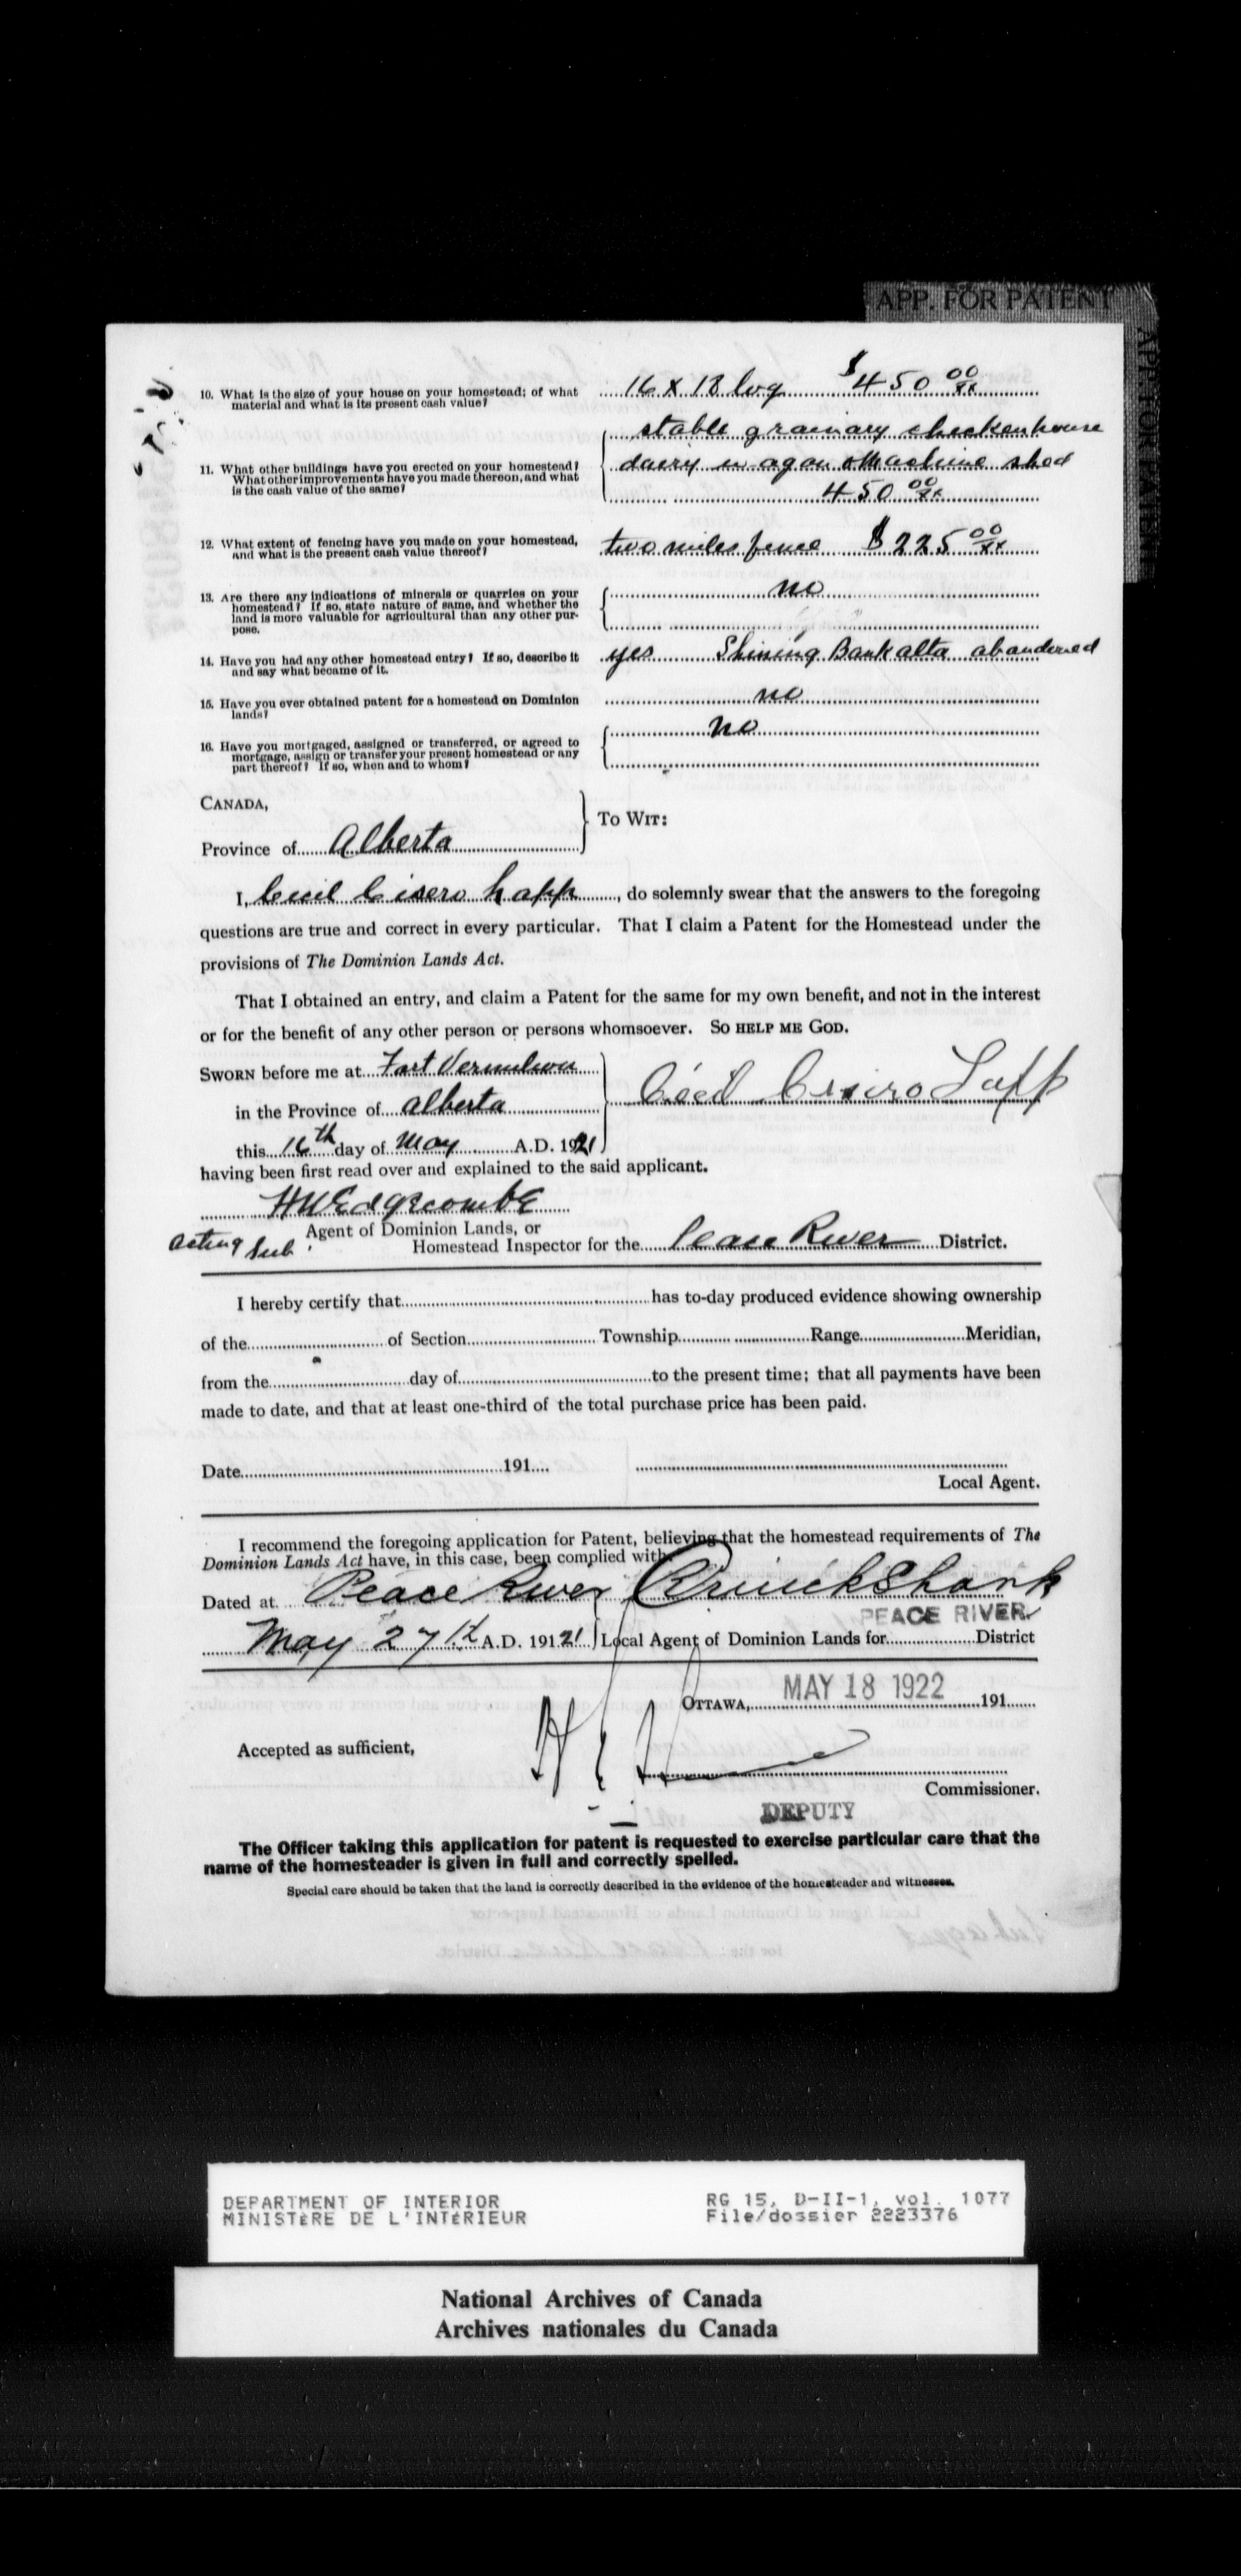 APP. FOR PATENT
APP. FOR PATENT
10. What is the size of your house on your homestead; of what
material and what is its present cash value?
16 x 18 log $450 00/xx
11. What other buildings have you erected on your homestead?
What other improvements have you made thereon, and what
is the cash value of the same?
stable grainary chickenhouse
dairy wagon & Machine shed
450 00/xx
12. What extent of fencing have you made on your homestead,
and what is the present cash value thereof?
two miles fence $225 00/xx
13. Are there any indications of minerals or quarries on your
homestead? If so, state nature of same, and whether the
land is more valuable for agricultural than any other pur-
pose.
no
14. Have you had any other homestead entry? If so, describe it
and say what became of it.
yes Shining Bank alta abandoned
15. Have you ever obtained patent for a homestead on Dominion
lands?
no
16. Have you mortgaged, assigned or transferred, or agreed to
mortgage, assign or transfer your present homestead or any
part thereof? If so, when and to whom?
no
CANADA,
Province of Alberta
To Wit:
I, Cecil Cisero Lapp, do solemnly swear that the answers to the foregoing
questions are true and correct in every particular. That I claim a Patent for the Homestead under the
provisions of The Dominion Lands Act.
That I obtained an entry, and claim a Patent for the same for my own benefit, and not in the interest
or for the benefit of any other person or persons whomsoever. So HELP ME GOD.
SWORN before me at Fort Vermilion
in the Province of alberta
this 16th day of May A.D. 1921
Cecil Cisero Lapp
having been first read over and explained to the said applicant.
HW Edgecombe
acting Sub
Agent of Dominion Lands, or
Homestead Inspector for the Peace River District.
I hereby certify that has to-day produced evidence showing ownership
of the of Section Township Range Meridian,
from the day of to the present time; that all payments have been
made to date, and that at least one-third of the total purchase price has been paid.
Date 191
Local Agent.
I recommend the foregoing application for Patent, believing that the homestead requirements of The
Dominion Lands Act have, in this case, been complied with.
Dated at Peace River Cruickshank
PEACE RIVER
May 27th A.D. 19121 Local Agent of Dominion Lands for District
OTTAWA, MAY 18 1922 191
Accepted as sufficient,
Commissioner.
DEPUTY
The Officer taking this application for patent is requested to exercise particular care that the
name of the homesteader is given in full and correctly spelled.
Special care should be taken that the land is correctly described in the evidence of the homesteader and witnesses.
DEPARTMENT OF INTERIOR
MINISTÈRE DE L'INTÉRIEUR
RG 15, D-II-1, vol. 1077
File/dossier 2223376
National Archives of Canada
Archives nationales du Canada